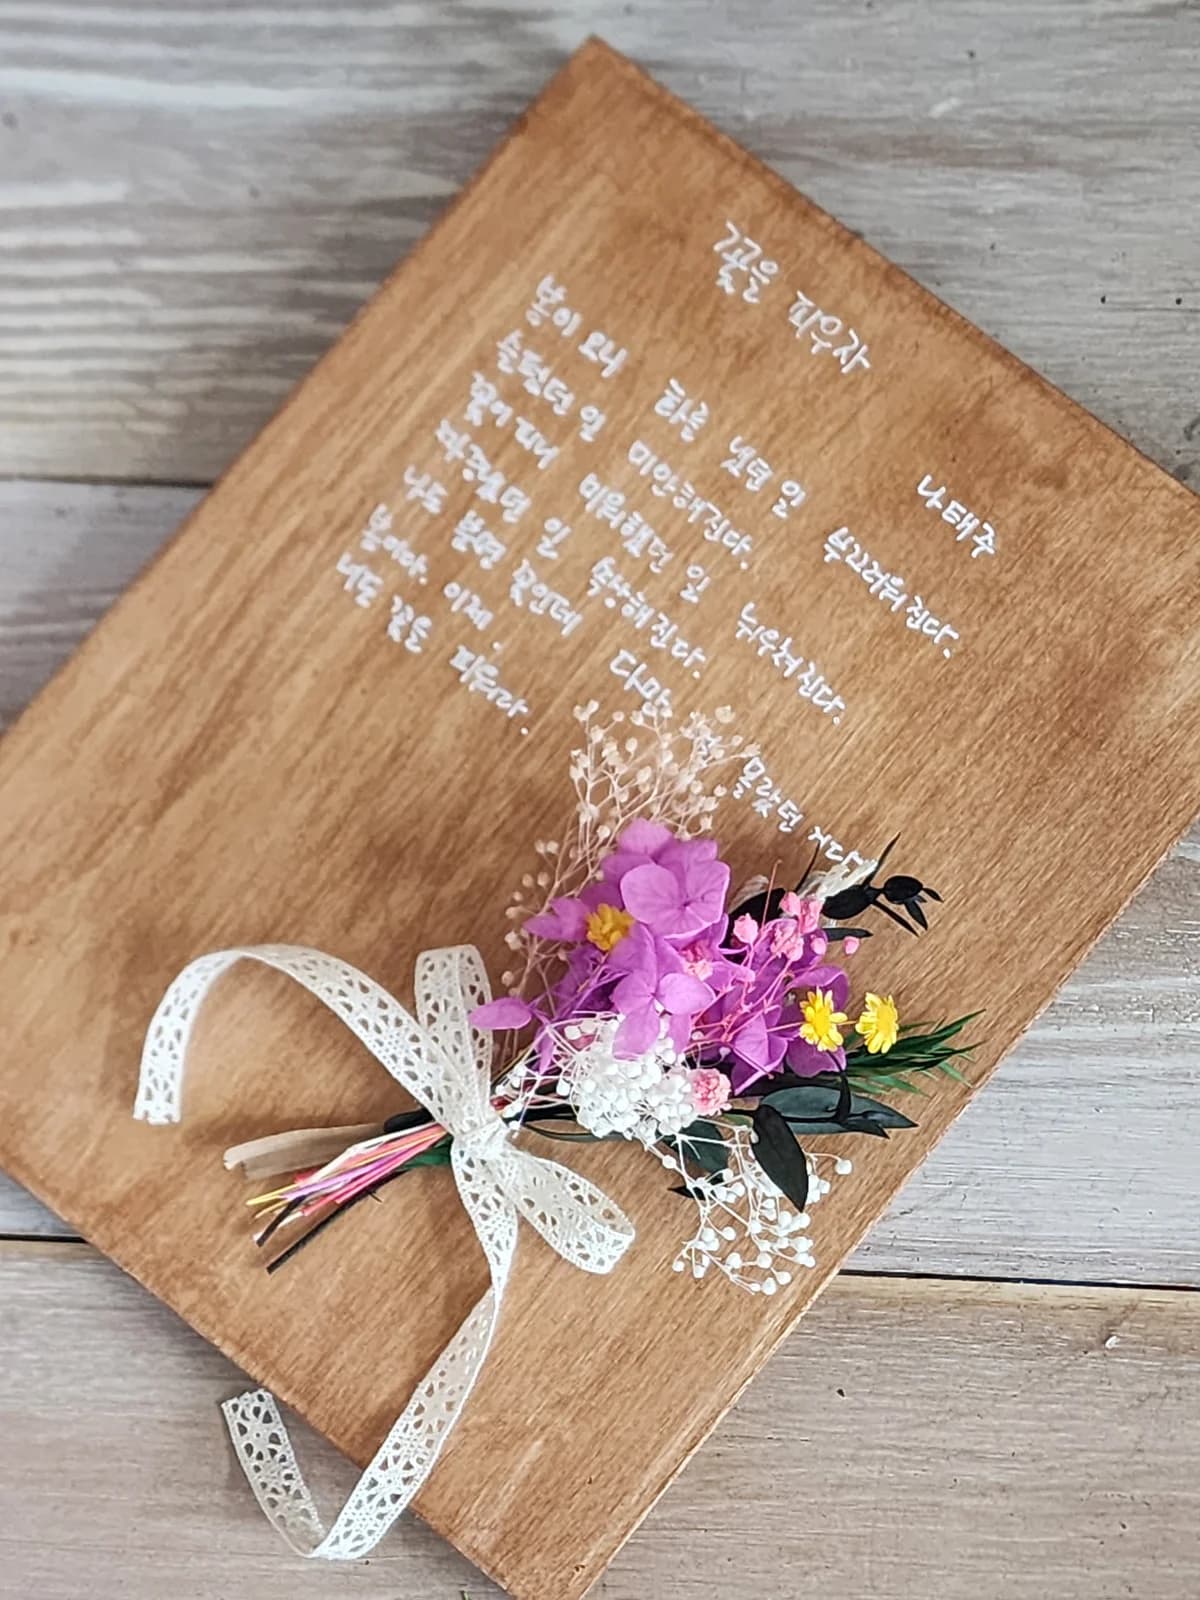 꽃을 피우자
나태주
봄이 오니 화를 냈던 일 부끄러워진다.
슬펐던 일 미안해진다.
꽃이 피니 미워했던 일 뉘우쳐진다.
짜증냈던 일 속상해진다.
나도 분명 꽃인데 다만 몰랐던 거다
봄이다. 이제.
너도 꽃을 피우자.